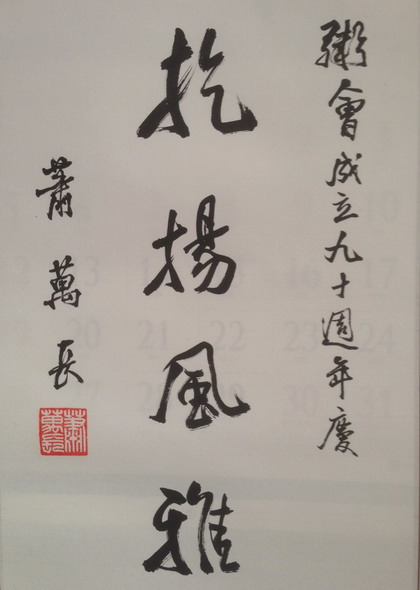 粥會成立九十週年慶
扢揚風雅
蕭萬長
蕭萬長